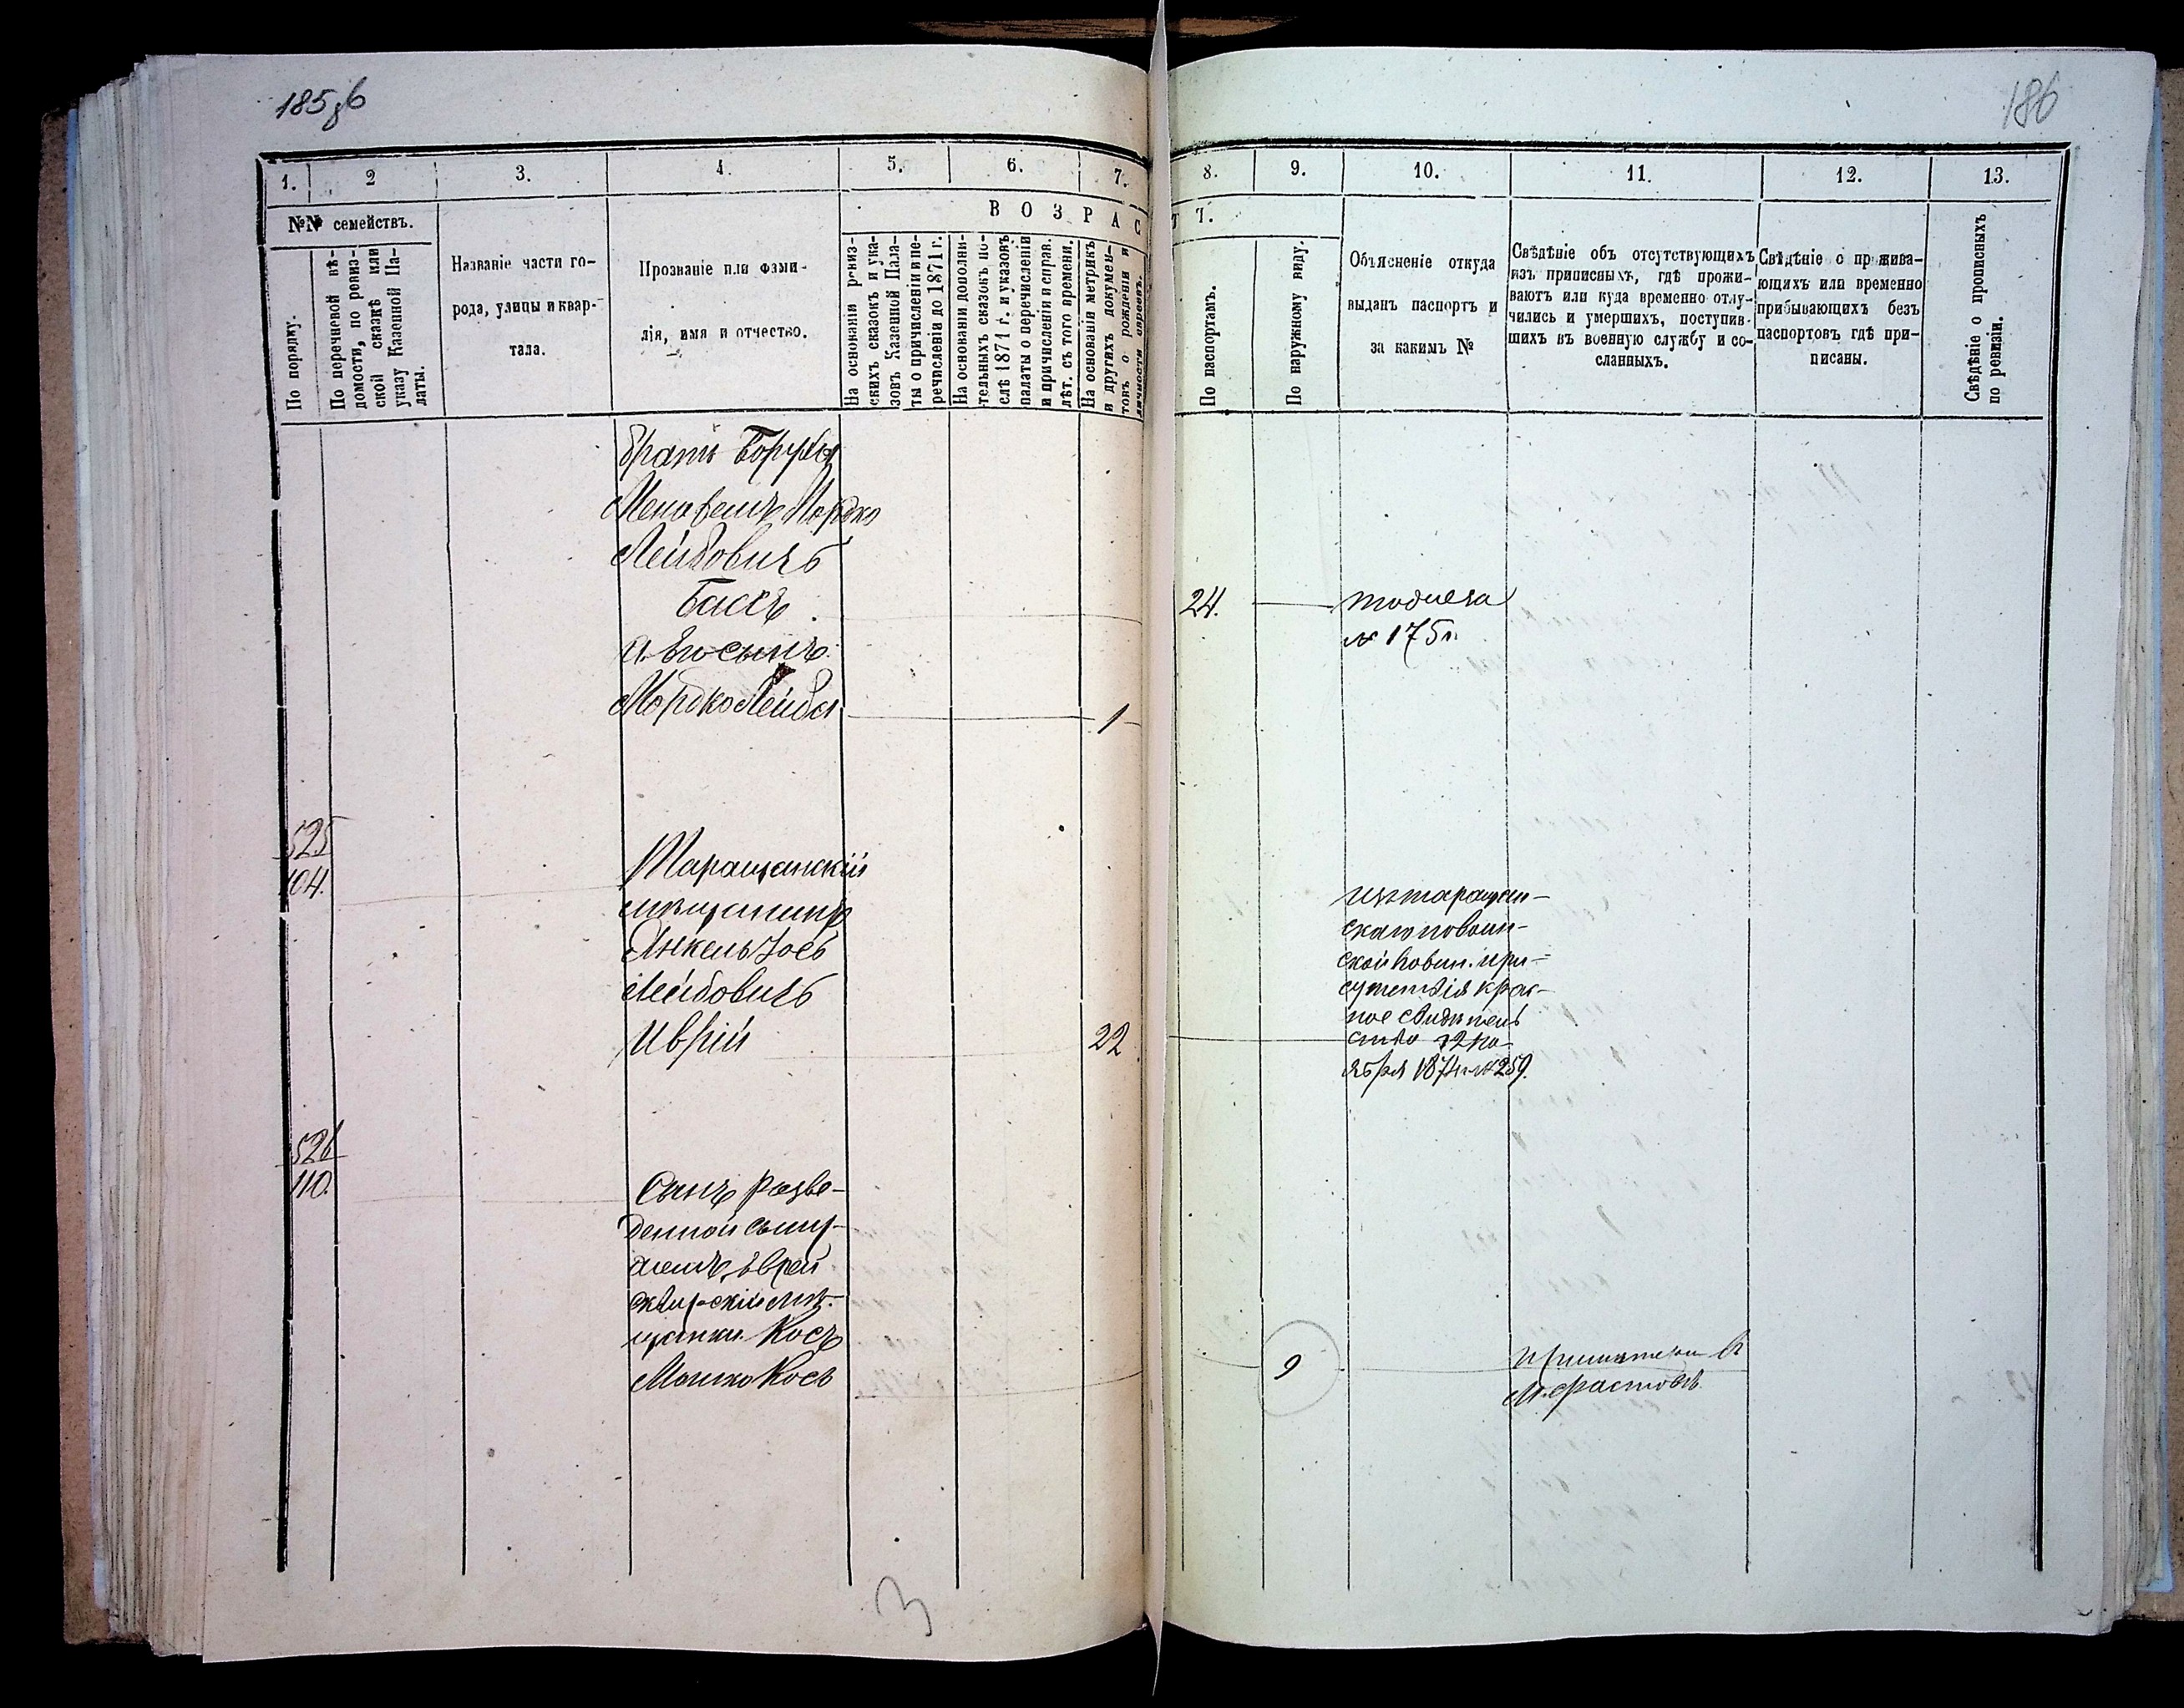 185 об
186
1.
2
3.
4.
5.
6.
7.
8.
9.
10.
11.
12.
13.
№№ семействъ.
По порядку.
По перечневой вѣ-
домости, по ревиз-
ской сказкѣ или
указу Казенной Па-
латы.
Названіе части го-
рода, улицы и квар-
тала.
Прозваніе или фами-
лія, имя и отчество.
ВОЗРАС
Т 7.
На основаніи ревиз-
скихъ сказокъ и ука-
зовъ Казенной Пала-
ты о причисленіи и пе-
речисленіи до 1871 г.
На основаніи дополни-
тельныхъ сказокъ по-
слѣ 1871 г. и указовъ
палаты о перечисленіи
и причисленіи и справ.
лѣт. съ того времени.
На основаніи метрикъ
и другихъ докумен-
товъ о рожденіи и
личности евреевъ.
По паспортамъ.
По наружному виду.
Объясненіе откуда
выданъ паспортъ и
за какимъ №
Свѣдѣніе объ отсутствующихъ
изъ приписныхъ, гдѣ прожи-
ваютъ или куда временно отлу-
чились и умершихъ, поступив-
шихъ въ военную службу и со-
сланныхъ.
Свѣдѣніе о прожива-
ющихъ или временно
прибывающихъ безъ
паспортовъ гдѣ при-
писаны.
Свѣдѣніе о прописныхъ
по ревизіи.
братъ Боруха
Мордко
Лейбовичъ
Баскъ
24.
№ 175
а. Его сынъ
Мордко Лейба
1
525
104.
Таращанскій
мѣщанинъ
Янкель Іось
Лейбовичъ
Иврій
22
изъ таращан-
скаго повоин-
ской повин. при-
сутствія крас-
ное свидѣтель
ство 12 но-
ября 1874 г № 259.
526
110.
Сынъ разве-
денной съ му-
жемъ, Еврей
сквирскій мѣ-
щанки Косъ
Мошко Косъ
9
М. Фастовѣ.
3